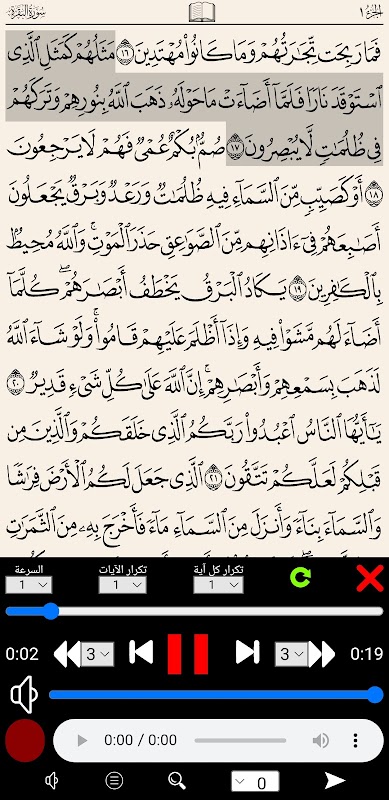 سورة البقرة
الجزء ١
فَمَا رَبِحَت تِّجَـٰرَتُهُمْ وَمَا كَانُوا۟ مُهْتَدِينَ ١٦ مَثَلُهُمْ كَمَثَلِ ٱلَّذِى
ٱسْتَوْقَدَ نَارًا فَلَمَّآ أَضَآءَتْ مَا حَوْلَهُۥ ذَهَبَ ٱللَّهُ بِنُورِهِمْ وَتَرَكَهُمْ
فِى ظُلُمَـٰتٍ لَّا يُبْصِرُونَ ١٧ صُمٌّۢ بُكْمٌ عُمْىٌ فَهُمْ لَا يَرْجِعُونَ
١٨ أَوْ كَصَيِّبٍ مِّنَ ٱلسَّمَآءِ فِيهِ ظُلُمَـٰتٌ وَرَعْدٌ وَبَرْقٌ يَجْعَلُونَ
أَصَـٰبِعَهُمْ فِىٓ ءَاذَانِهِم مِّنَ ٱلصَّوَٰعِقِ حَذَرَ ٱلْمَوْتِ ۚ وَٱللَّهُ مُحِيطٌۢ
بِٱلْكَـٰفِرِينَ ١٩ يَكَادُ ٱلْبَرْقُ يَخْطَفُ أَبْصَـٰرَهُمْ ۖ كُلَّمَآ
أَضَآءَ لَهُم مَّشَوْا۟ فِيهِ وَإِذَآ أَظْلَمَ عَلَيْهِمْ قَامُوا۟ ۚ وَلَوْ شَآءَ ٱللَّهُ
لَذَهَبَ بِسَمْعِهِمْ وَأَبْصَـٰرِهِمْ ۚ إِنَّ ٱللَّهَ عَلَىٰ كُلِّ شَىْءٍ قَدِيرٌ ٢٠
يَـٰٓأَيُّهَا ٱلنَّاسُ ٱعْبُدُوا۟ رَبَّكُمُ ٱلَّذِى خَلَقَكُمْ وَٱلَّذِينَ مِن
قَبْلِكُمْ لَعَلَّكُمْ تَتَّقُونَ ٢١ ٱلَّذِى جَعَلَ لَكُمُ ٱلْأَرْضَ فِرَٰشًا
وَٱلسَّمَآءَ بِنَآءً وَأَنزَلَ مِنَ ٱلسَّمَآءِ مَآءً فَأَخْرَجَ بِهِۦ مِنَ ٱلثَّمَرَٰتِ
السرعة تكرار الآيات تكرار كل آية
1 1 1
0:02 3 3 0:19
0:00 / 0:00
0